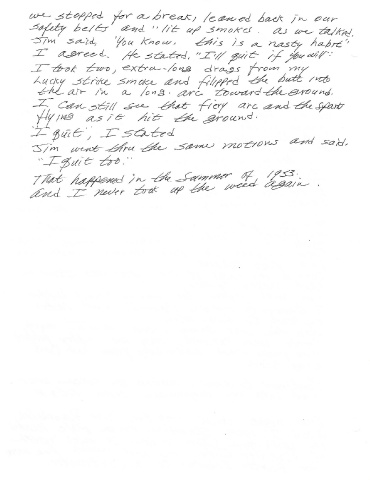 we stopped for a break, leaned back in our
safety belts and "lit up smokes. as we talked.
Jim said, "You know, this is a nasty habit".
I agreed. He stated. "I'll quit if you will".
I took two, extra-long drags from my
Lucky strike smoke and flipped the butt into
the air in a long arc toward the ground.
I can still see that fiery arc and the spark
flying as it hit the ground.
"I quit", I stated
Jim went thru the same motions and said.
"I quit too."
That happened in the Summer of 1953.
and I never took up the weed again.